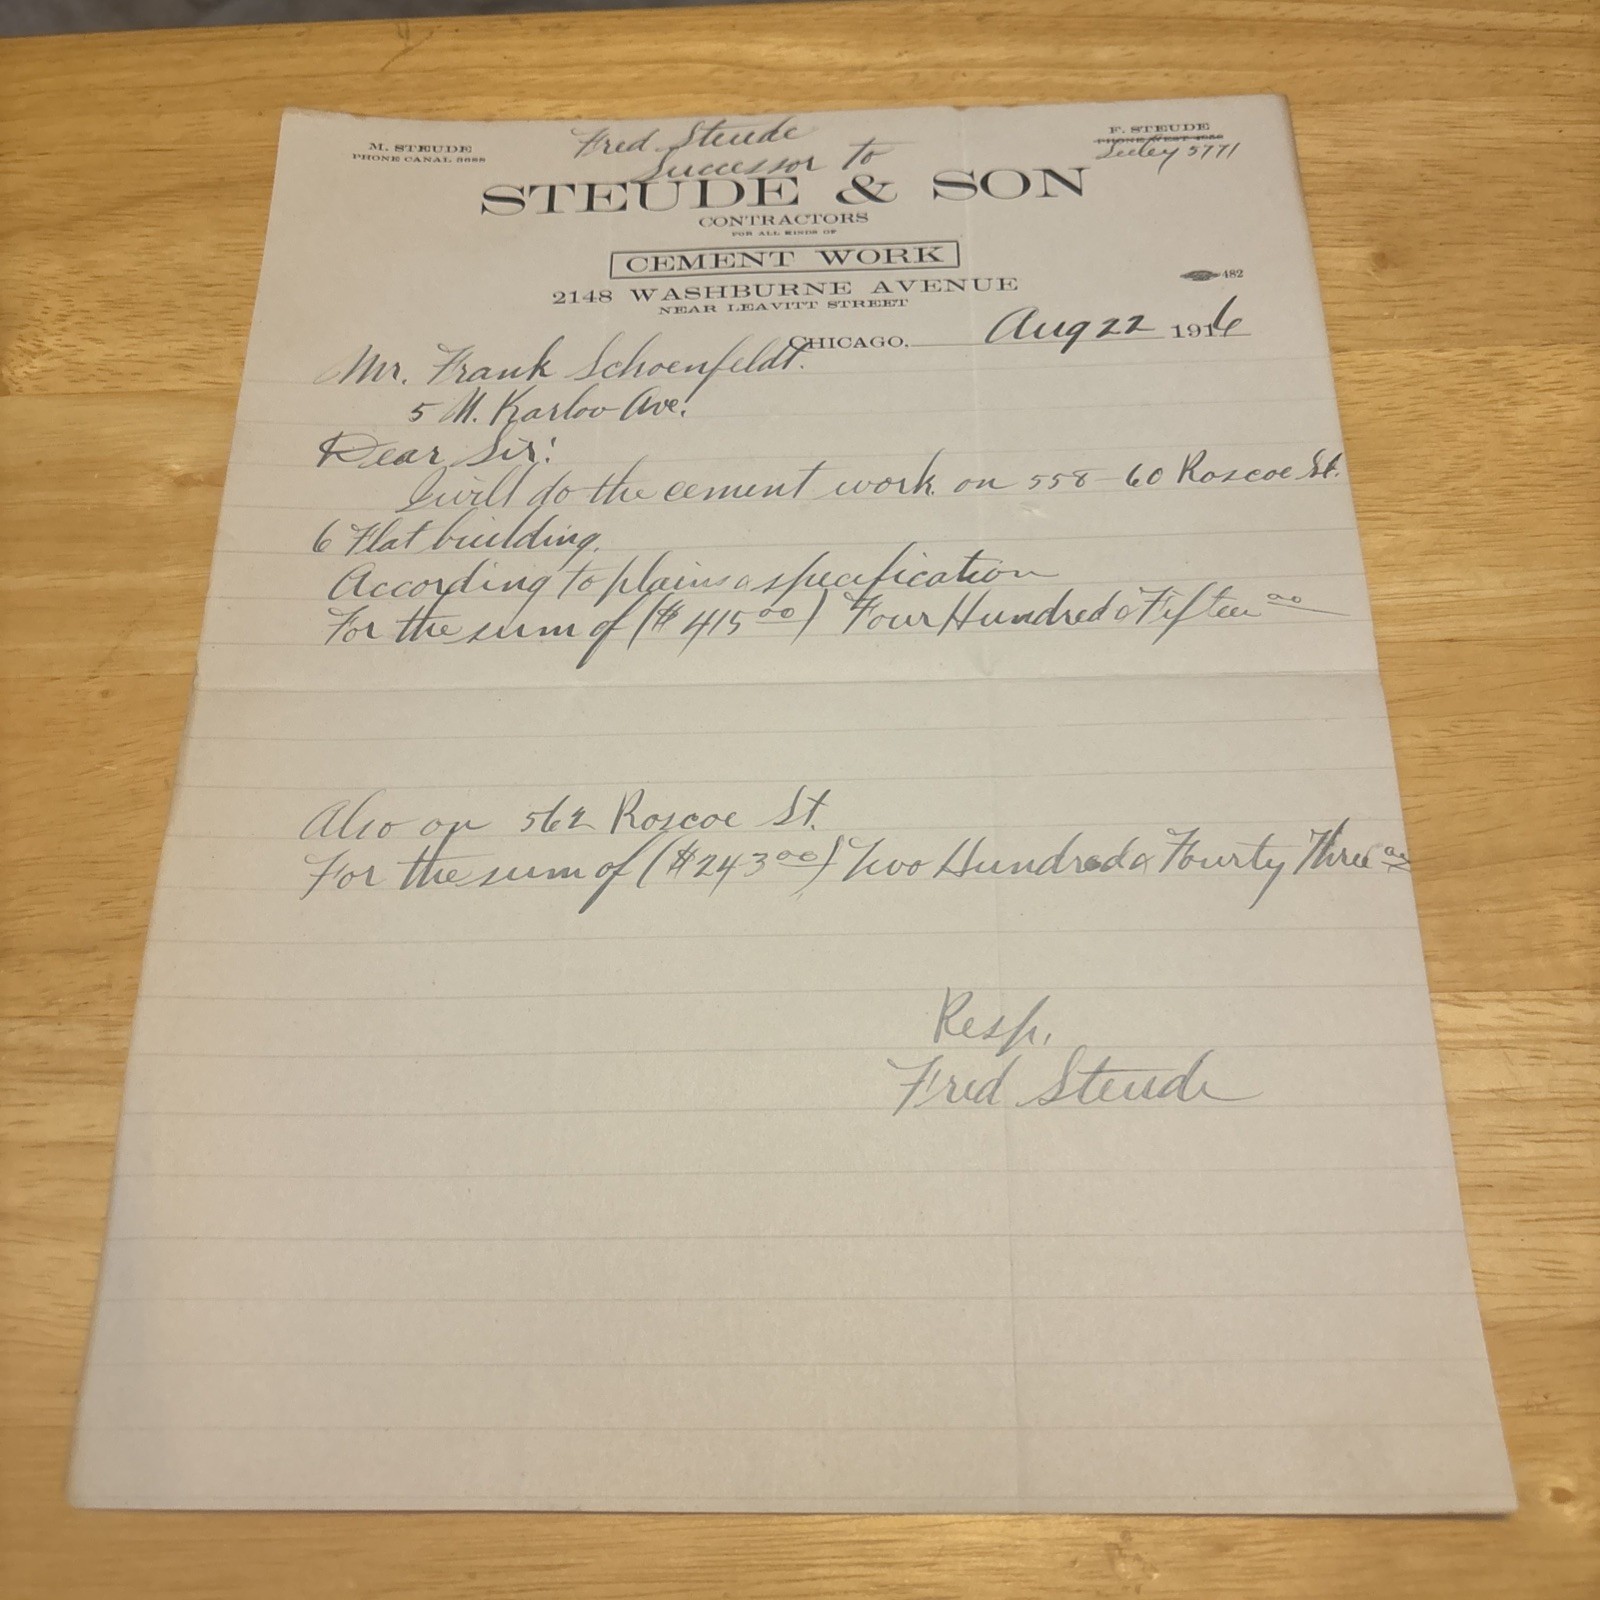 M. STEUDE
PHONE CANAL
F. STEUDE
Seeley 5771
Fred Steude
Successor to
STEUDE & SON
CONTRACTORS
FOR ALL KINDS OF
CEMENT WORK
2148 WASHBURNE AVENUE
NEAR LEAVITT STREET
482
CHICAGO. Aug 22 1916
Mr. Frank Schoenfeldt.
5 N. Karlov Ave.
Dear Sir:
I will do the cement work on 558-60 Roscoe St.
6 Flat building.
According to plains & specification
For the sum of ($415 00) Four Hundred & Fifteen 00
Also on 562 Roscoe St.
For the sum of ($243 00) Two Hundred & Fourty Three 00
Resp.
Fred Steude